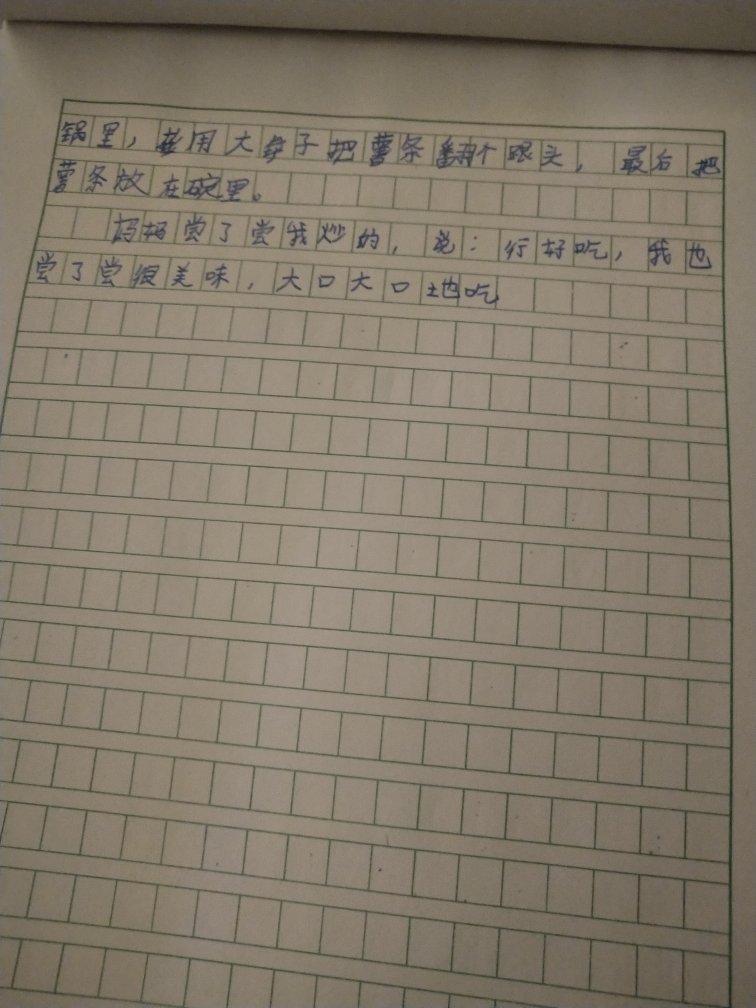 锅里，并用大筷子把薯条翻个跟头，最后把
薯条放在碗里。
妈妈尝了尝我炒的，说：行好吃，我也
尝了尝很美味，大口大口地吃